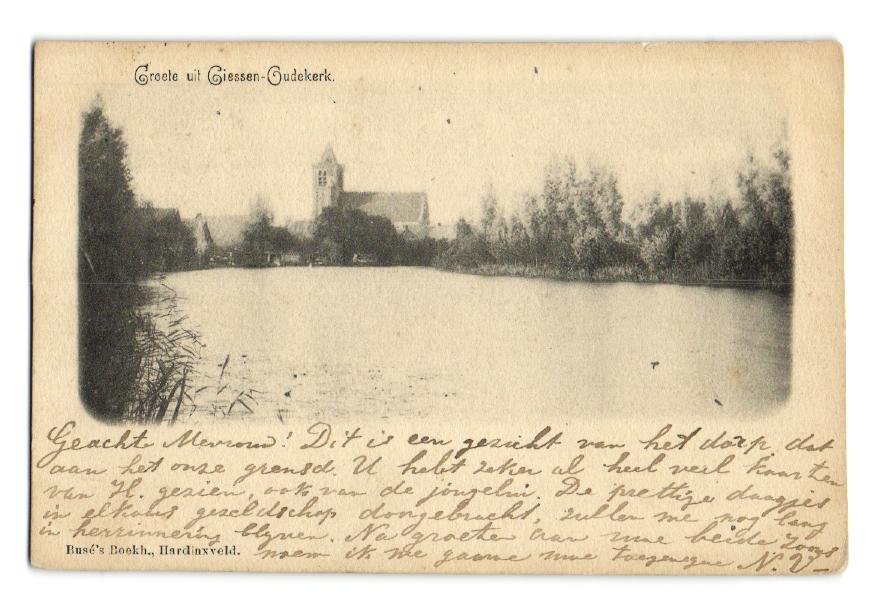 Groete uit Giessen-Oudekerk.
Geacht Mevrouw! Dit is een gezicht van het dorp dat
aan het onze grensd. U hebt zeker al heel veel kaarten
van H. gezien, ook van de jongelui. De prettige daagjes
in elkaars gezeldschap doorgebracht, zullen me nog lang
in herrinnering blyven. Na groeten aan uwe beide zoons
noem ik me gaarne uwe toegenegne N. V
Busé's Boekh., Hardinxveld.